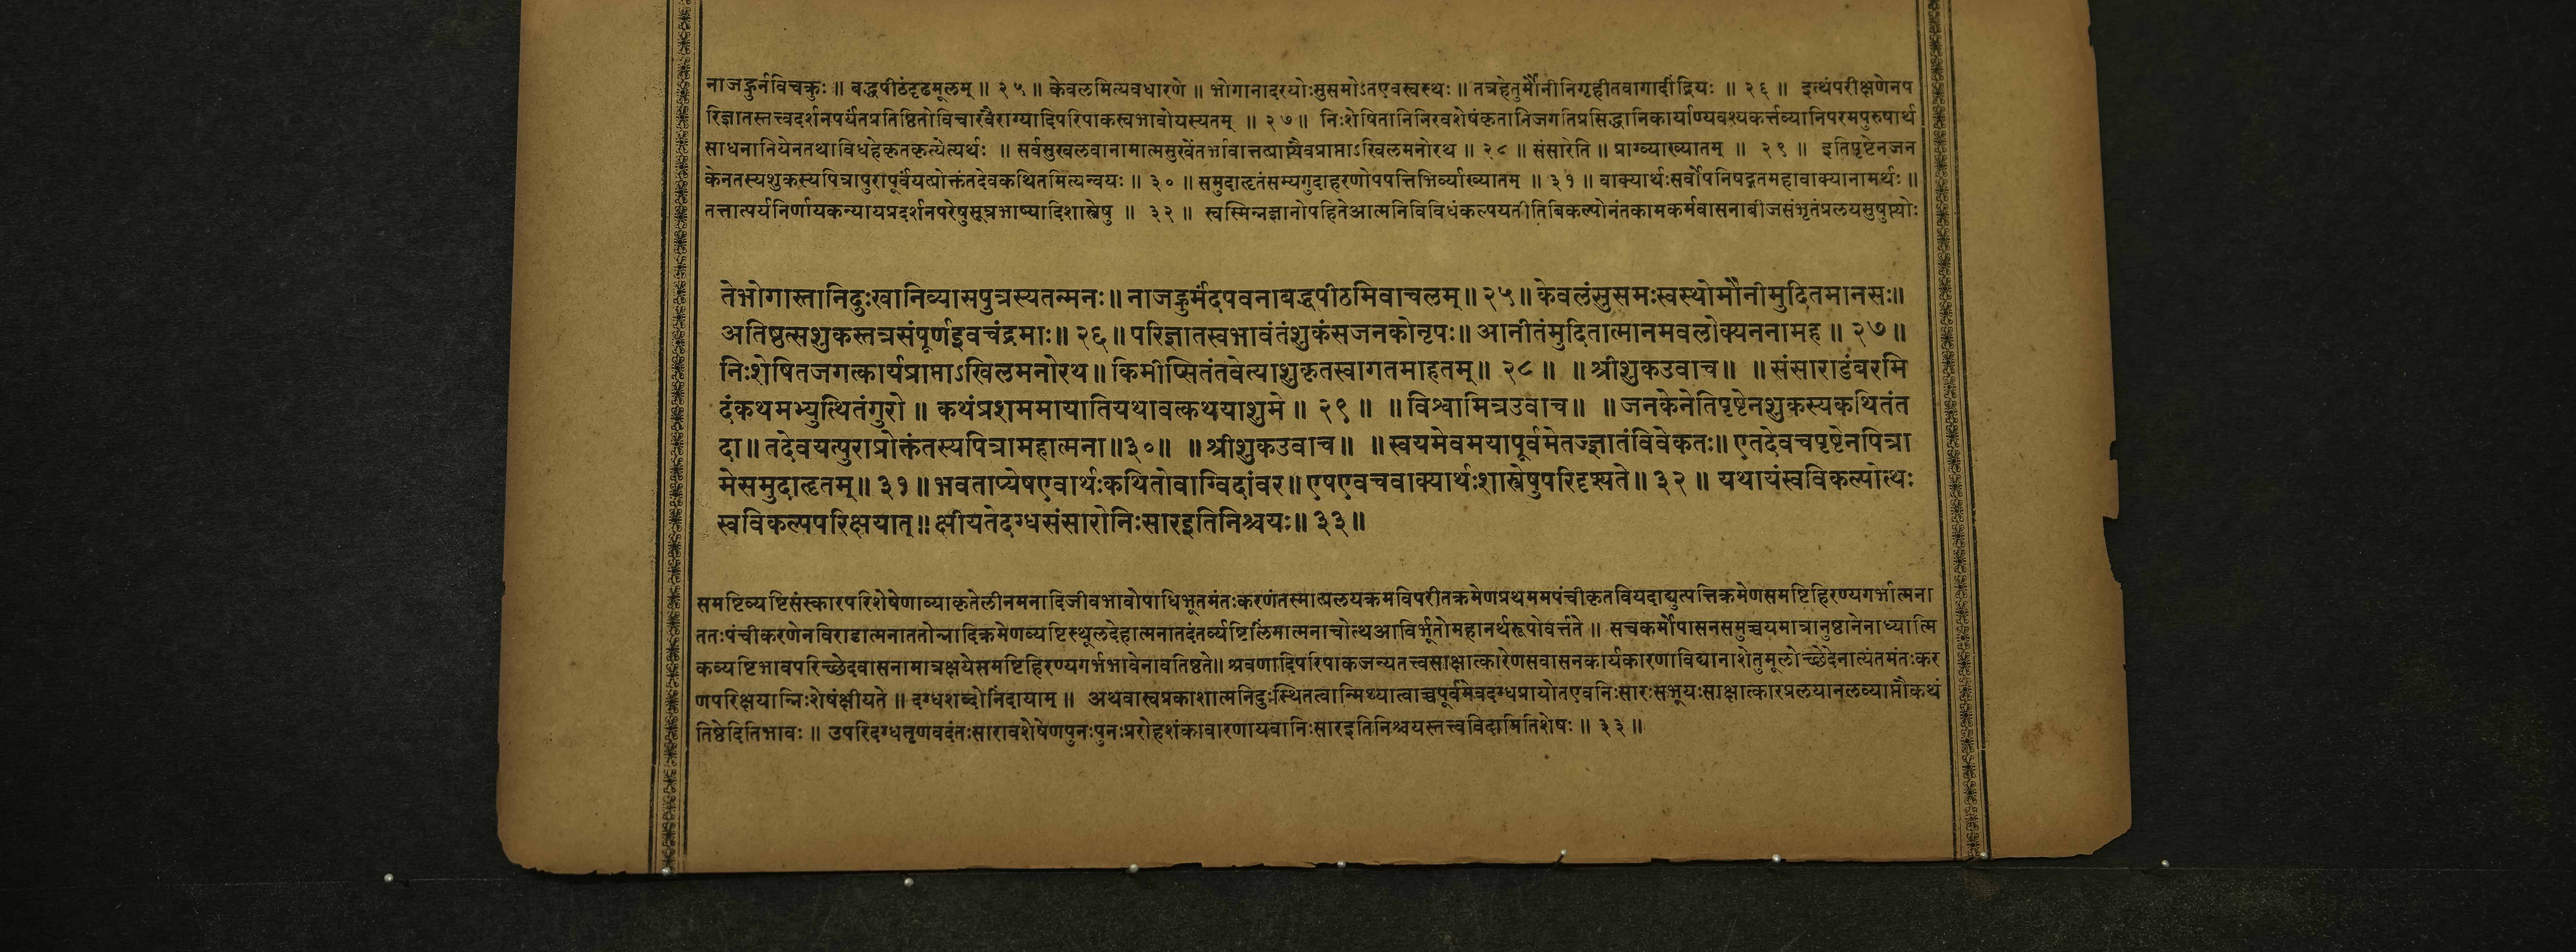 नाजह्रुर्नविचक्रुः ॥ बद्धपीठंदृढमूलम् ॥ २५ ॥ केवलमित्यवधारणे ॥ भोगानादरयोःसुसमोऽतएवस्वस्थः ॥ तत्रहेतुर्मौनीनिगृहीतवागादींद्रियः ॥ २६ ॥ इत्थंपरीक्षणेनप
रिज्ञातस्तत्त्वदर्शनपर्यंतप्रतिष्ठितोविचारवैराग्यादिपरिपाकस्वभावोयस्यतम् ॥ २७ ॥ निःशेषितानिनिरवशेषंकृतानिजगतिप्रसिद्धानिकार्याण्यवश्यकर्त्तव्यानिपरमपुरुषार्थ
साधनानियेनतथाविधहेकृतकृत्येत्यर्थः ॥ सर्वसुखलवानामात्मसुखेंतर्भावात्तत्प्राप्त्यैवप्राप्ताऽखिलमनोरथ ॥ २८ ॥ संसारेति ॥ प्राग्व्याख्यातम् ॥ २९ ॥ इतिपृष्टेनजन
केनतस्यशुकस्यपित्रापुरापूर्वंयत्प्रोक्तंतदेवकथितमित्यन्वयः ॥ ३० ॥ समुदाहृतंसम्यगुदाहरणोपपत्तिभिर्व्याख्यातम् ॥ ३१ ॥ वाक्यार्थःसर्वोपनिषद्गतमहावाक्यानामर्थः ॥
तत्तात्पर्यनिर्णायकन्यायप्रदर्शनपरेषुसूत्रभाष्यादिशास्त्रेषु ॥ ३२ ॥ स्वस्मिन्नज्ञानोपहितेआत्मनिविविधंकल्पयतीतिविकल्पोनंतकामकर्मवासनाबीजसंभृतंप्रलयसुषुप्त्योः
तेभोगास्तानिदुःखानिव्यासपुत्रस्यतन्मनः ॥ नाजह्रुर्मंदपवनाबद्धपीठमिवाचलम् ॥ २५ ॥ केवलंसुसमःस्वस्थोमौनीमुदितमानसः ॥
अतिष्ठत्सशुकस्तत्रसंपूर्णइवचंद्रमाः ॥ २६ ॥ परिज्ञातस्वभावंतंशुकंसजनकोनृपः ॥ आनीतंमुदितात्मानमवलोक्यननामह ॥ २७ ॥
निःशेषितजगत्कार्यप्राप्ताऽखिलमनोरथ ॥ किमीप्सितंतवेत्याशुकृतस्वागतमाहतम् ॥ २८ ॥ ॥ श्रीशुकउवाच ॥ ॥ संसाराडंबरमि
दंकथमभ्युत्थितंगुरो ॥ कथंप्रशममायातियथावत्कथयाशुमे ॥ २९ ॥ ॥ विश्वामित्रउवाच ॥ ॥ जनकेनेतिपृष्टेनशुकस्यकथितंत
दा ॥ तदेवयत्पुराप्रोक्तंतस्यपित्रामहात्मना ॥ ३० ॥ ॥ श्रीशुकउवाच ॥ ॥ स्वयमेवमयापूर्वमेतज्ज्ञातंविवेकतः ॥ एतदेवचपृष्टेनपित्रा
मेसमुदाहृतम् ॥ ३१ ॥ भवताप्येषएवार्थःकथितोवाग्विदांवर ॥ एषएवचवाक्यार्थःशास्त्रेषुपरिदृश्यते ॥ ३२ ॥ यथायंस्वविकल्पोत्थः
स्वविकल्पपरिक्षयात् ॥ क्षीयतेदग्धसंसारोनिःसारइतिनिश्चयः ॥ ३३ ॥
समष्टिव्यष्टिसंस्कारपरिशेषेणाव्याकृतेलीनमनादिजीवभावोपाधिभूतमंतःकरणंतस्मात्प्रलयक्रमविपरीतक्रमेणप्रथममपंचीकृतवियदाद्युत्पत्तिक्रमेणसमष्टिहिरण्यगर्भात्मना
ततःपंचीकरणेनविराडात्मनाततोन्नादिक्रमेणव्यष्टिस्थूलदेहात्मनातदंतर्व्यष्टिलिंगात्मनाचोत्थआविर्भूतोमहानर्थरूपोवर्त्तते ॥ सचकर्मोपासनसमुच्चयमात्रानुष्ठानेनाध्यात्मि
कव्यष्टिभावपरिच्छेदवासनामात्रक्षयेसमष्टिहिरण्यगर्भभावेनावतिष्ठते ॥ श्रवणादिपरिपाकजन्यतत्त्वसाक्षात्कारेणसवासनकार्यकारणाविद्यानाशेतुमूलोच्छेदेनात्यंतमंतःकर
णपरिक्षयान्निःशेषंक्षीयते ॥ दग्धशब्दोनिंदायाम् ॥ अथवास्वप्रकाशात्मनिदुःस्थितत्वान्मिथ्यात्वाच्चपूर्वमेवदग्धप्रायोतएवनिःसारःसभूयःसाक्षात्कारप्रलयानलव्याप्तौकथं
तिष्ठेदितिभावः ॥ उपरिदग्धतृणवदंतःसारावशेषेणपुनःपुनःप्ररोहशंकावारणायवानिःसारइतिनिश्चयस्तत्त्वविदामितिशेषः ॥ ३३ ॥